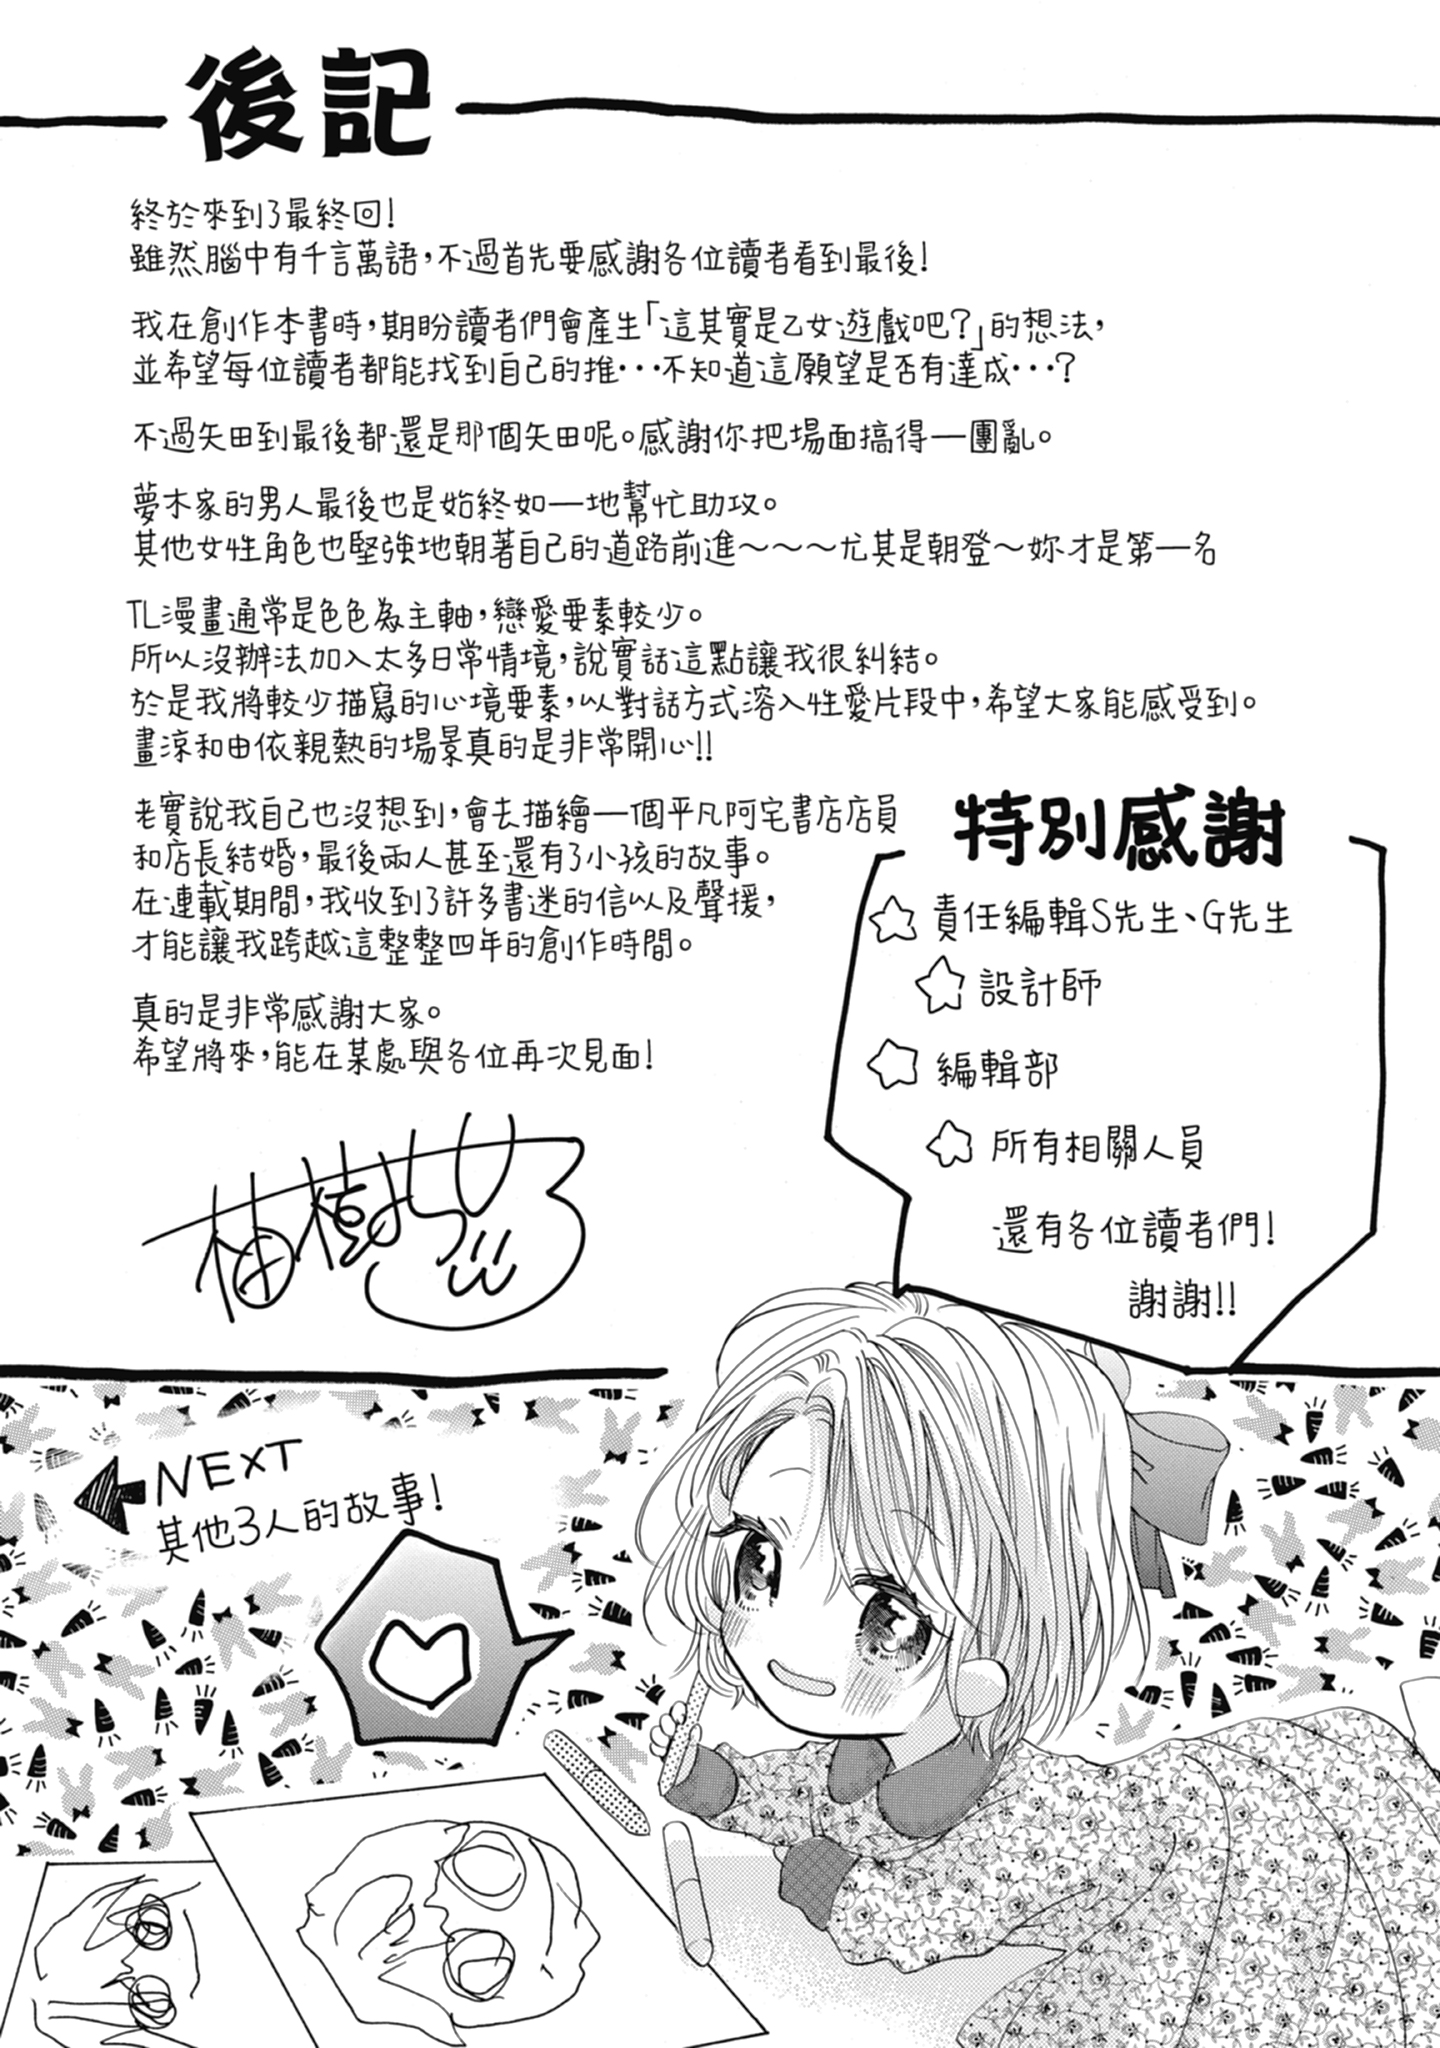 後記
終於來到了最終回!
雖然腦中有千言萬語,不過首先要感謝各位讀者看到最後!
我在創作本書時,期盼讀者們會產生「這其實是乙女遊戲吧?」的想法,
並希望每位讀者都能找到自己的推⋯不知道這願望是否有達成⋯?
不過矢田到最後都還是那個矢田呢。感謝你把場面搞得一團亂。
夢木家的男人最後也是始終如一地幫忙助攻。
其他女性角色也堅強地朝著自己的道路前進~~~尤其是朝登~妳才是第一名
TL漫畫通常是色色為主軸,戀愛要素較少。
所以沒辦法加入太多日常情境,說實話這點讓我很糾結。
於是我將較少描寫的心境要素,以對話方式溶入性愛片段中,希望大家能感受到。
畫涼和由依親熱的場景真的是非常開心!!
老實說我自己也沒想到,會去描繪一個平凡阿宅書店店員
和店長結婚,最後兩人甚至還有了小孩的故事。
在連載期間,我收到了許多書迷的信以及聲援,
才能讓我跨越這整整四年的創作時間。
真的是非常感謝大家。
希望將來,能在某處與各位再次見面!
特別感謝
☆責任編輯S先生、G先生
☆設計師
☆編輯部
☆所有相關人員
還有各位讀者們!
謝謝!!
NEXT
其他3人的故事!